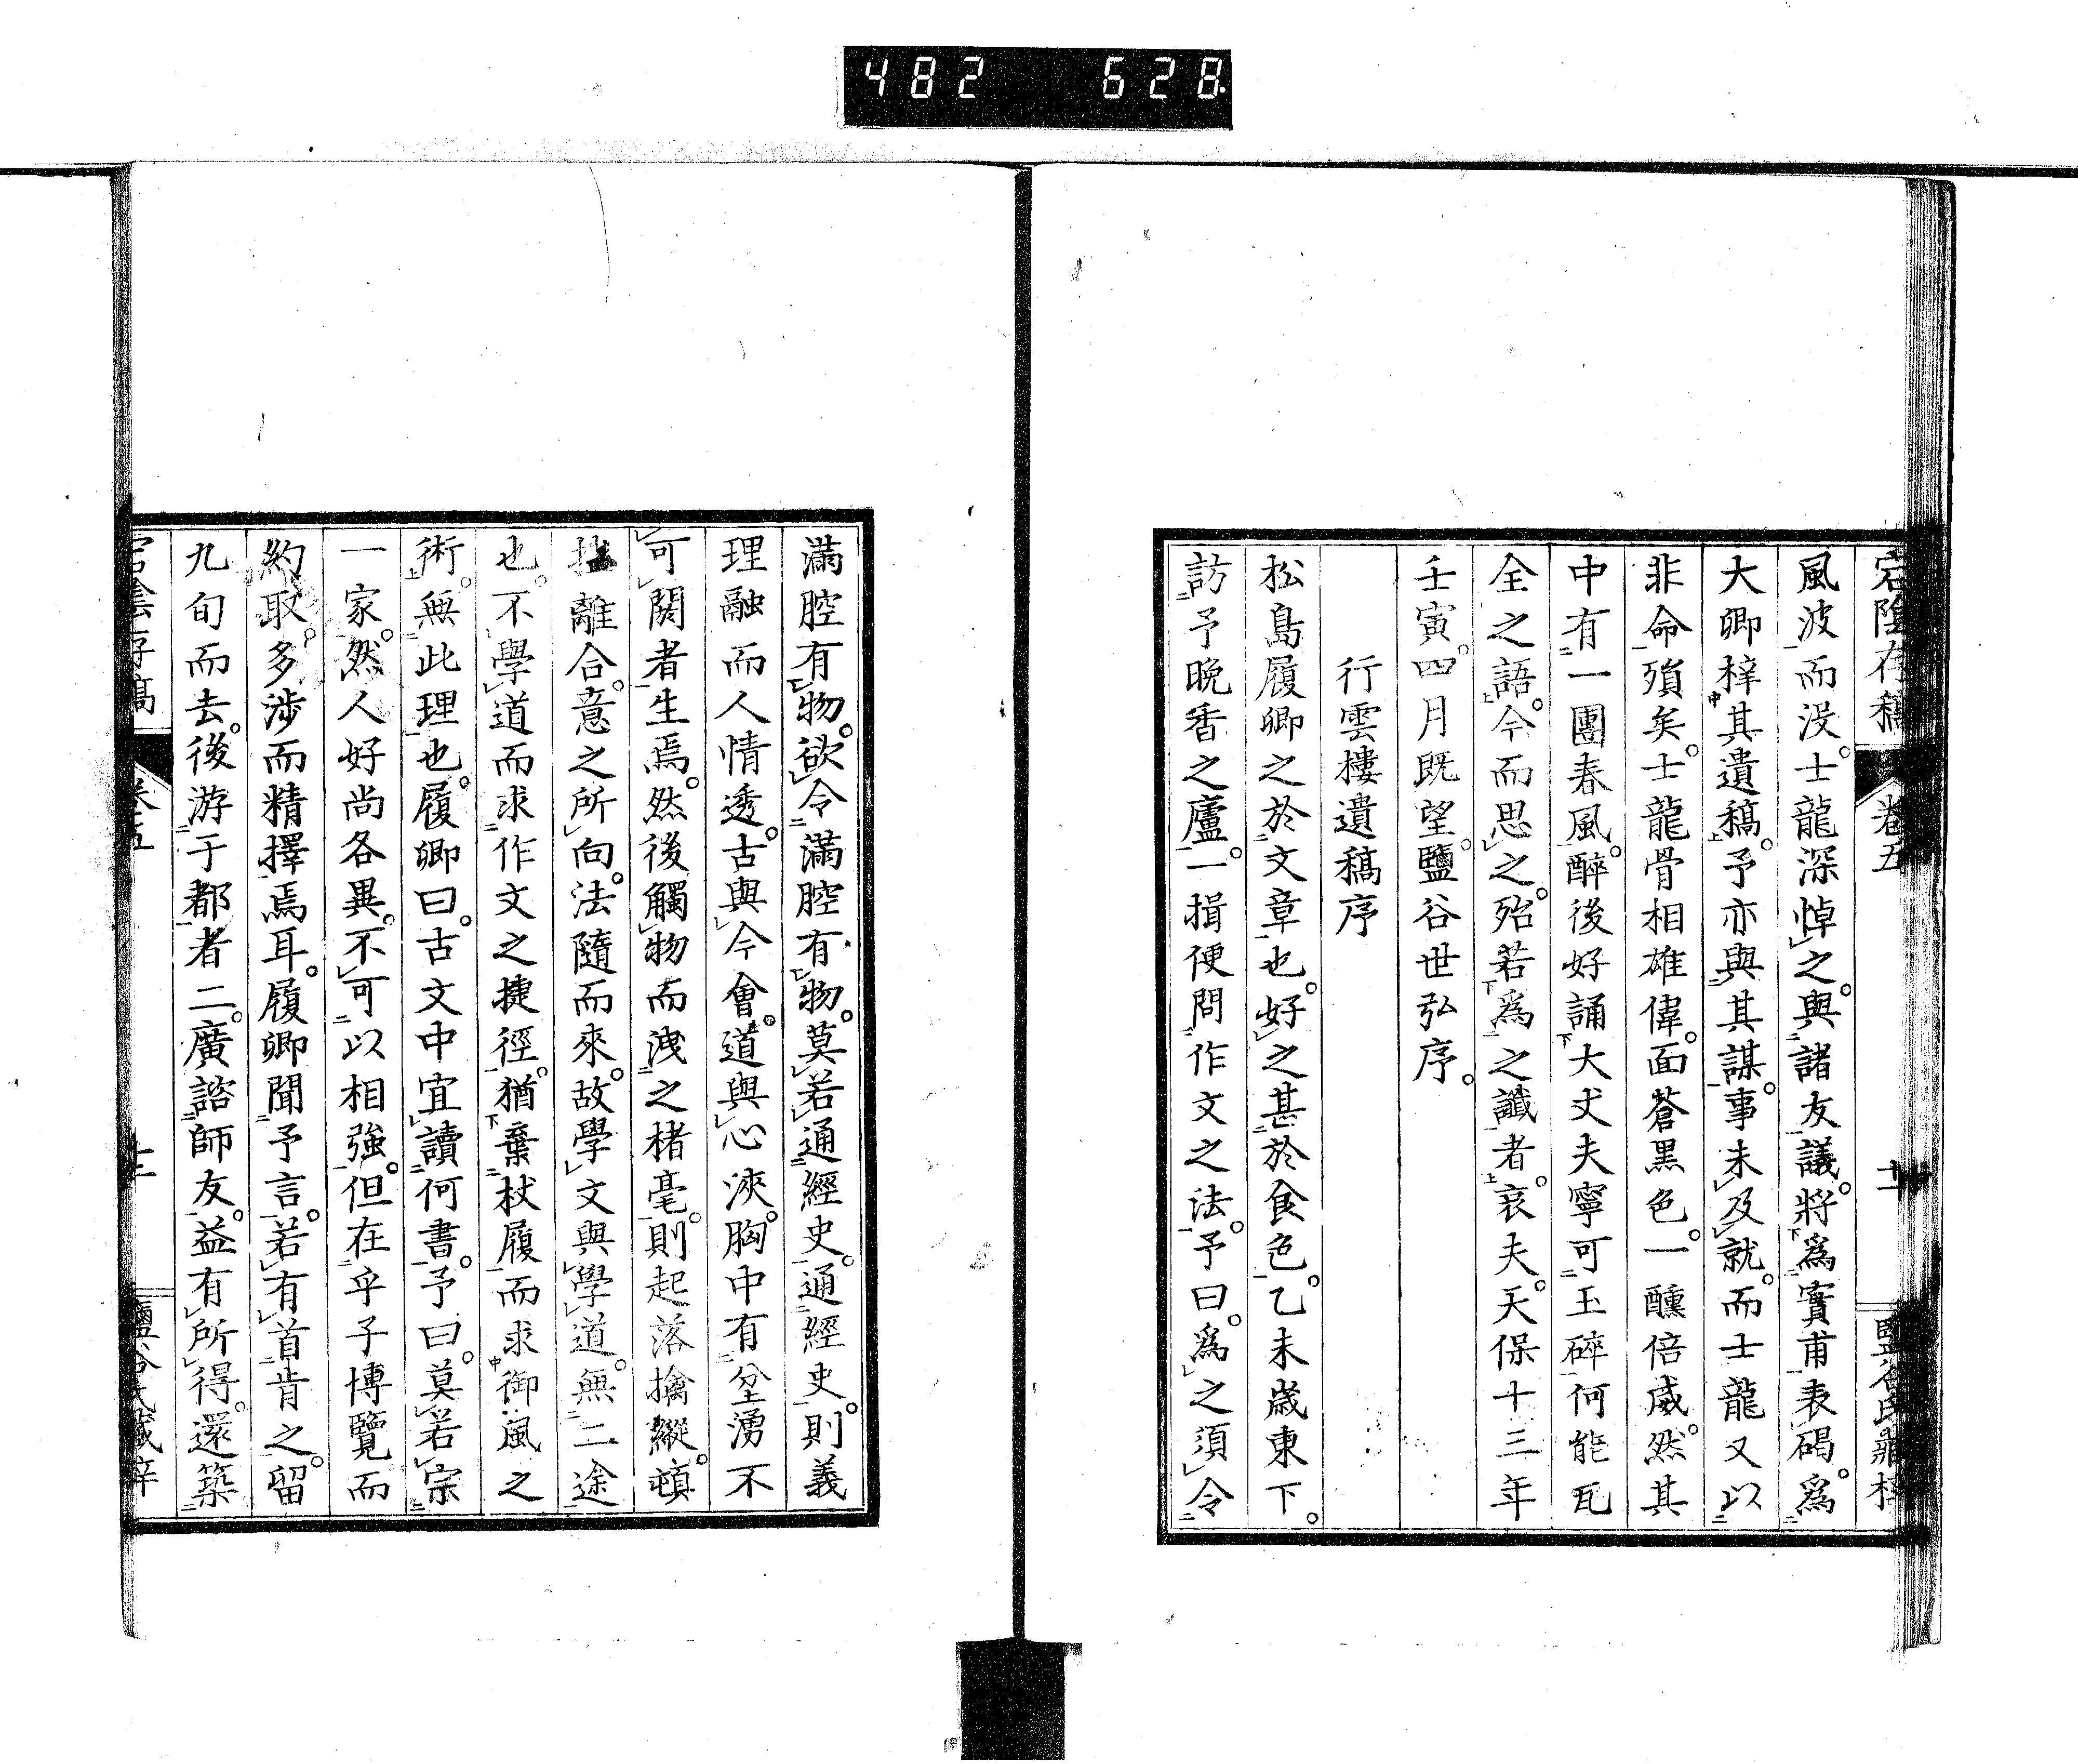 482 628.
宕陰存稿 卷五 十一 鹽谷氏藏梓
風波而沒。士龍深悼之。與諸友議。將爲實甫表碣。爲
大卿梓其遺稿。予亦與其謀。事未及就。而士龍又以
非命殞矣。士龍骨相雄偉。面蒼黑色。一醺倍威。然其
中有一團春風。醉後好誦大丈夫寧可玉碎何能瓦
全之語。今而思之。殆若爲之讖者。哀夫。天保十三年
壬寅。四月既望。鹽谷世弘序。
行雲樓遺稿序
松島履卿之於文章也。好之甚於食色。乙未歲東下。
訪予晚香之廬。一揖便問作文之法。予曰。爲之須令
滿腔有物。欲令滿腔有物。莫若通經史。通經史。則義
理融而人情透。古與今會。道與心浹。胸中有坌湧不
可閼者生焉。然後觸物而洩之楮毫。則起落擒縱。頓
挫離合。意之所向。法隨而來。故學文與學道。無二途
也。不學道而求作文之捷徑。猶棄杖履而求御風之
術。無此理也。履卿曰。古文中宜讀何書。予曰。莫若宗
一家。然人好尚各異。不可以相強。但在乎子博覽而
約取。多涉而精擇焉耳。履卿聞予言。若有首肯之。留
九旬而去。後游于都者二。廣諮師友。益有所得。還築
宕陰存稿 卷五 十二 鹽谷氏藏梓